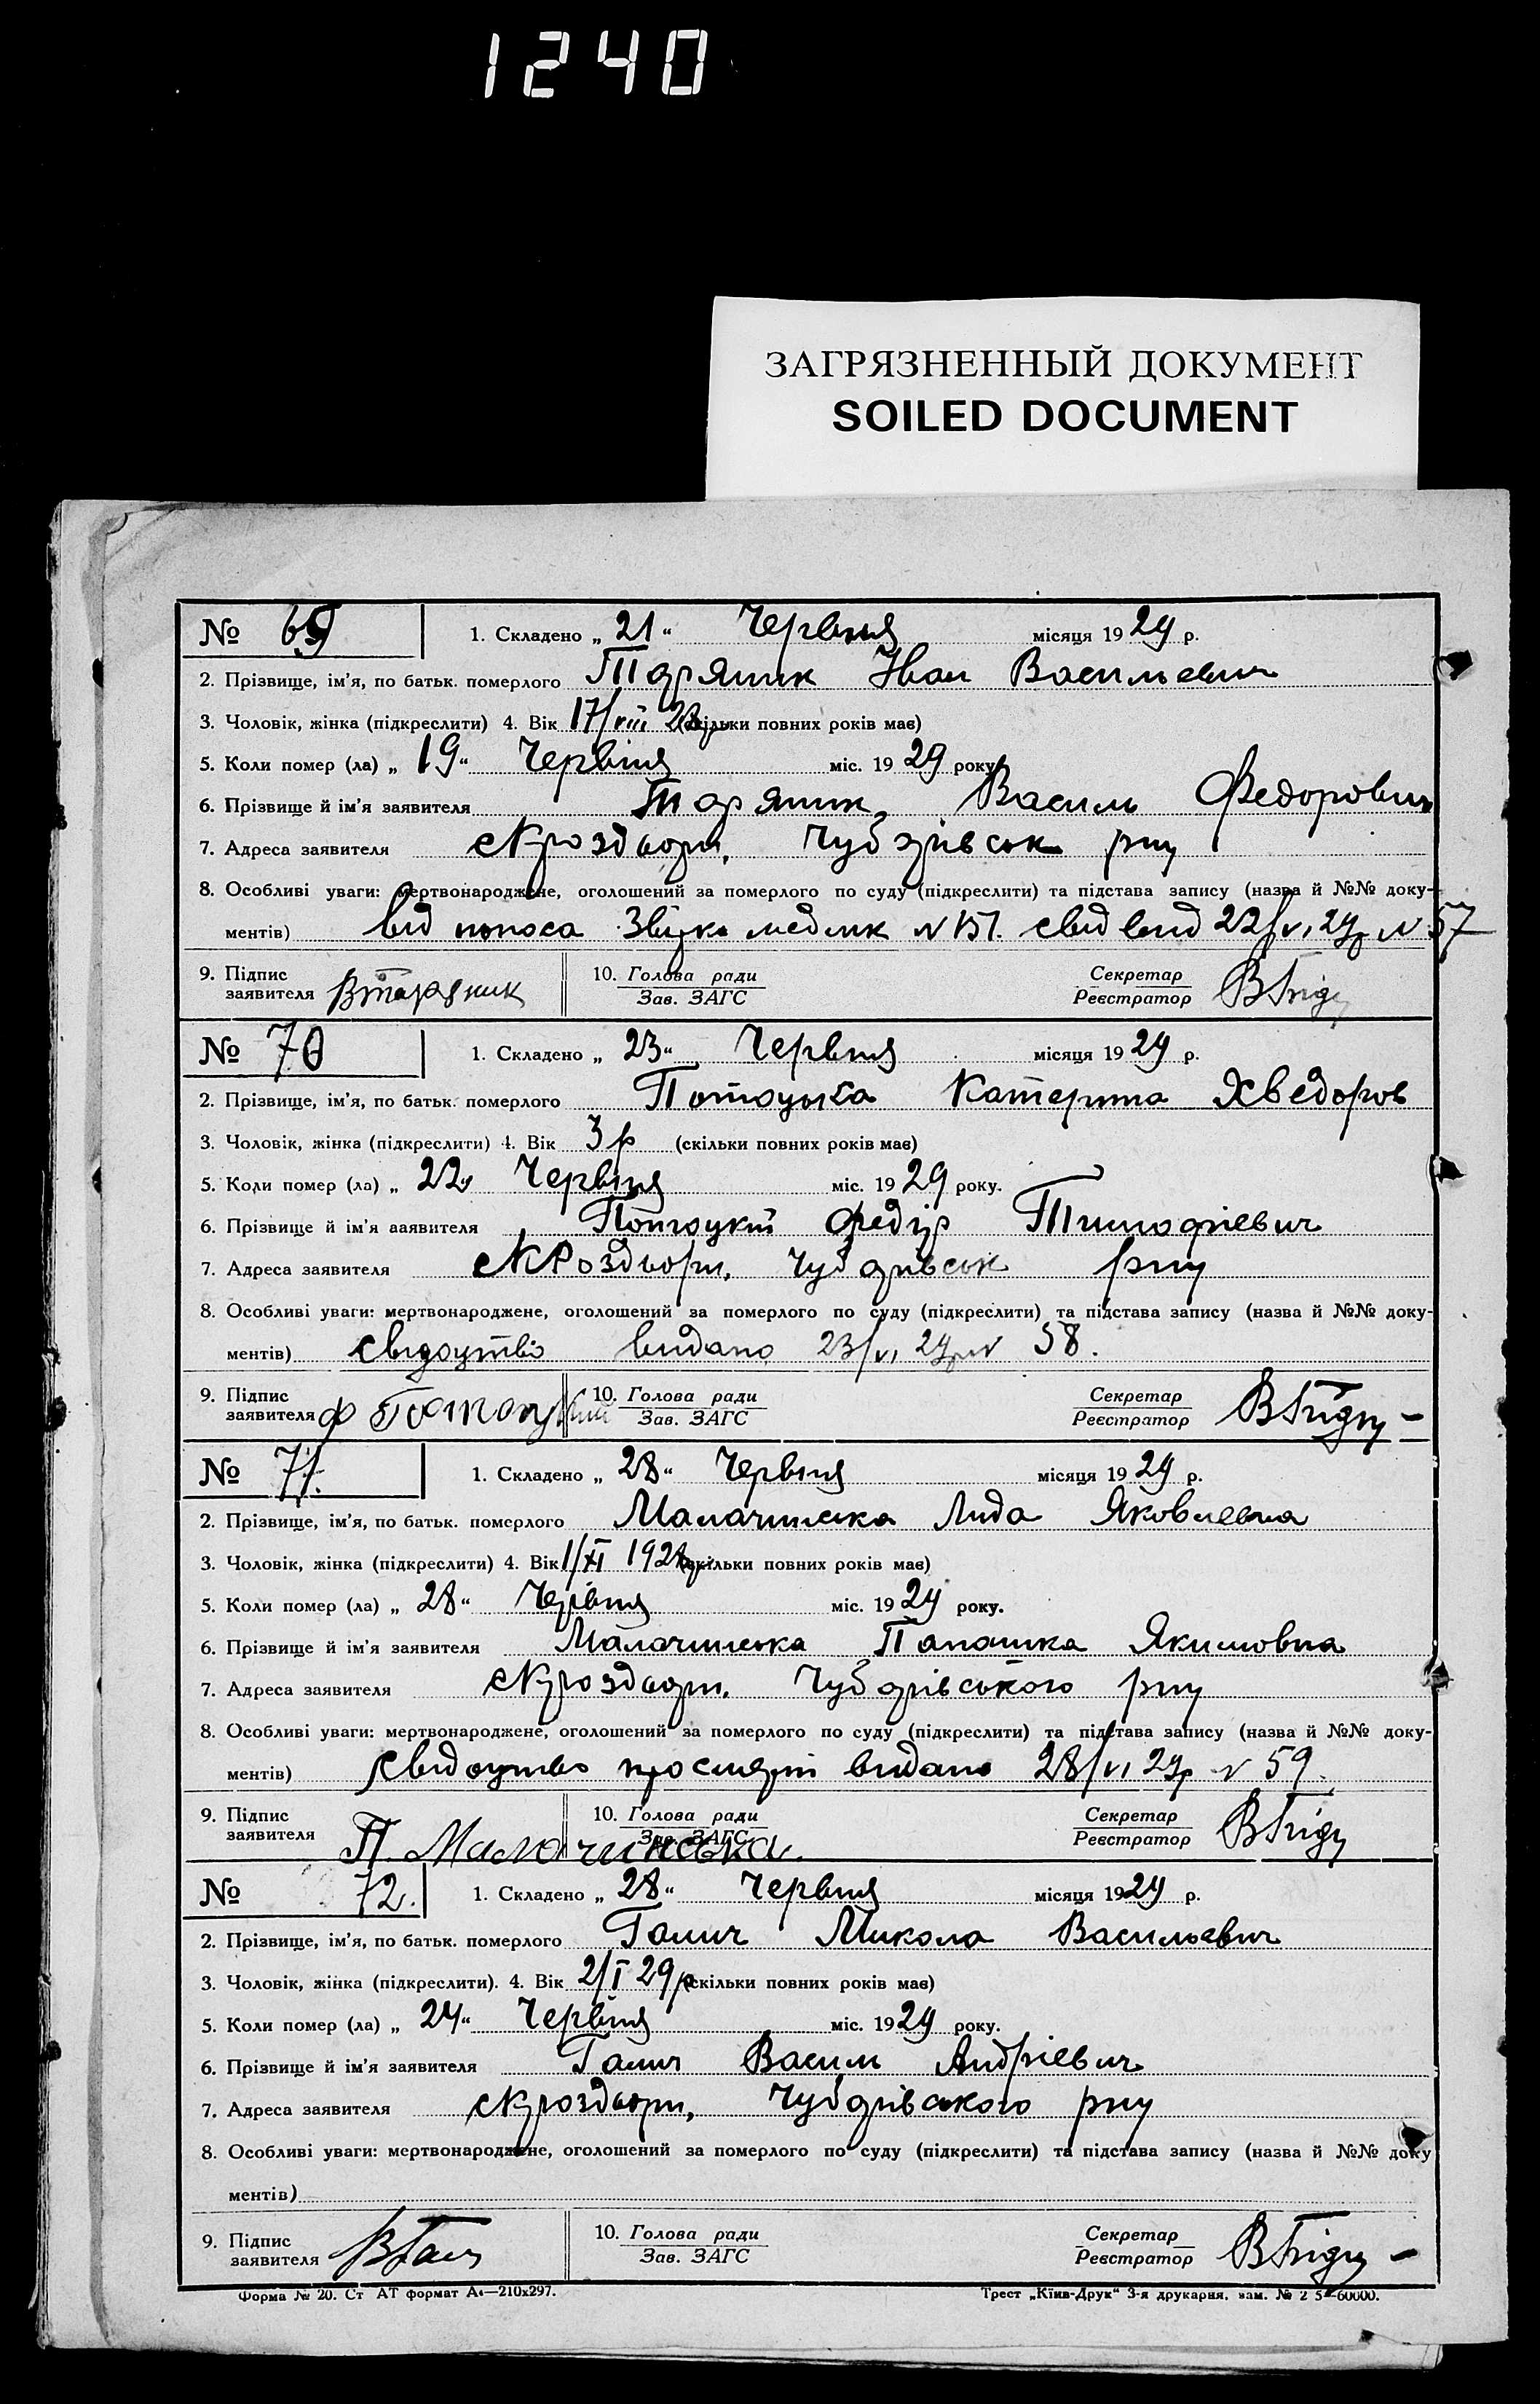 1240
ЗАГРЯЗНЕННЫЙ ДОКУМЕНТ
SOILED DOCUMENT
№ 69 1. Складено „ 21 “ Червня місяця 1929 р.
2. Прізвище, ім'я, по батьк. померлого Таряник Иван Васильевич
3. Чоловік, жінка (підкреслити) 4. Вік 17/VIII 28р (скільки повних років має)
5. Коли помер (ла) „ 19 “ Червіня міс. 1929 року
6. Прізвище й ім'я заявителя Таряник Василь Федорович
7. Адреса заявителя Чубарівськ рну
8. Особливі уваги: мертвонароджене, оголошений за померлого по суду (підкреслити) та підстава запису (назва й №№ доку-
ментів) від поноса медик N 151. свид вид 22/VI 29р N 57
9. Підпис заявителя ВТаряник 10. Голова ради Зав. ЗАГС Секретар Реєстратор
№ 70 1. Складено „ 23 “ Червня місяця 1929 р.
2. Прізвище, ім'я, по батьк. померлого Потоцька Катерина Хведоров
3. Чоловік, жінка (підкреслити) 4. Вік 3 р (скільки повних років має)
5. Коли помер (ла) „ 22 “ Червіня міс. 1929 року.
6. Прізвище й ім'я заявителя Потоцкій Федір Тимофієвич
7. Адреса заявителя Чубарівськ рну
8. Особливі уваги: мертвонароджене, оголошений за померлого по суду (підкреслити) та підстава запису (назва й №№ доку-
ментів) свідоцтво видано 23/VI 29р N 58.
9. Підпис заявителя Ф Потоцький 10. Голова ради Зав. ЗАГС Секретар Реєстратор
№ 71. 1. Складено „ 28 “ Червня місяця 1929 р.
2. Прізвище, ім'я, по батьк. померлого Малачинська Лида Яковлевна
3. Чоловік, жінка (підкреслити) 4. Вік 1/XI 1928р (скільки повних років має)
5. Коли помер (ла) „ 28 “ Червіня міс. 1929 року.
6. Прізвище й ім'я заявителя Малачинська Якимовна
7. Адреса заявителя Чубарівського рну
8. Особливі уваги: мертвонароджене, оголошений за померлого по суду (підкреслити) та підстава запису (назва й №№ доку-
ментів) свидоцтво про смерть видано 28/VI 29р N 59.
9. Підпис заявителя П. Малачинська. 10. Голова ради Зав. ЗАГС Секретар Реєстратор
№ 72. 1. Складено „ 28 “ Червня місяця 1929 р.
2. Прізвище, ім'я, по батьк. померлого Галич Микола Васильевич
3. Чоловік, жінка (підкреслити). 4. Вік 2/I 29р (скільки повних років має)
5. Коли помер (ла) „ 24 “ Червіня міс. 1929 року.
6. Прізвище й ім'я заявителя Галич Василь Андрієвич
7. Адреса заявителя Чубарівского рну
8. Особливі уваги: мертвонароджене, оголошений за померлого по суду (підкреслити) та підстава запису (назва й №№ доку
ментів)
9. Підпис заявителя ВГалич 10. Голова ради Зав. ЗАГС Секретар Реєстратор
Форма № 20. Ст АТ формат А4—210х297. Трест „Київ-Друк“ 3-я друкарня, зам. № 2 5—60000.